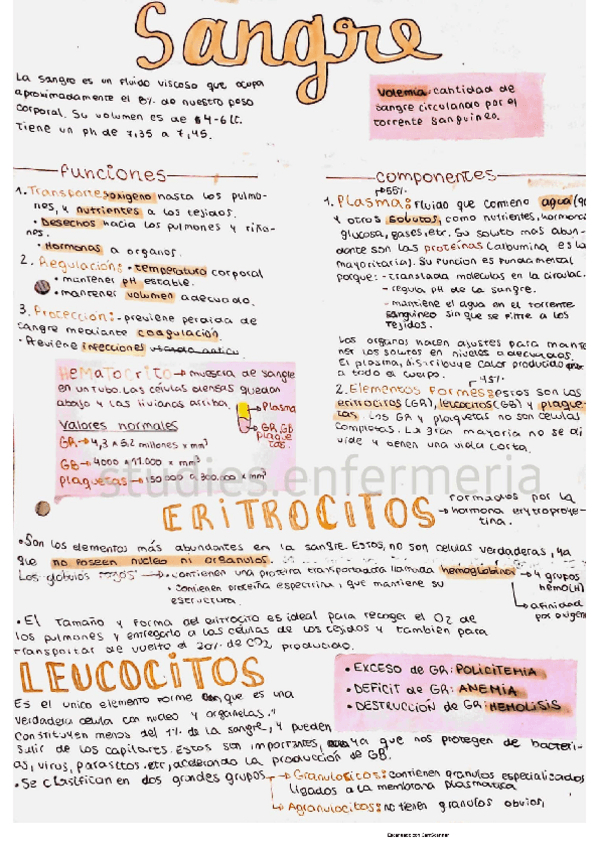 Sangre
La sangre es un fluido viscoso que ocupa
aproximadamente el 8% de nuestro peso
corporal. Su volumen es de 4-6Lt.
Tiene un ph de 7,35 a 7,45.
Volemia: cantidad de
sangre circulando por el
torrente sanguineo.
funciones
1. Transporte: oxigeno hasta los pulmo-
nes, y nutrientes a los tejidos.
• Desechos hacia los pulmones y riño-
nes.
• Hormonas a organos.
2. Regulación: • temperatura corporal
• mantener pH estable.
• mantener volumen adecuado.
3. Protección: - previene perdida de
sangre mediante coagulación.
• Previene infecciones
HEMATOCRITO → muestra de sangre
en un tubo. Las células densas quedan
abajo y las livianas arriba.
→ Plasma
→ GR, GB
plaque
tas.
Valores normales
GR → 4,3 a 5,2 millones x mm³
GB → 4000 a 11.000 x mm³
plaquetas → 150.000 a 300.000 x mm³
componentes
→ 55%
1. Plasma: fluido que contiene agua
y otros solutos, como nutrientes, hormona
glucosa, gases, etc. Su soluto más abun-
dante son las proteínas (albumina es la
mayoritaria). Su funcion es fundamental
porque: - translada moleculas en la circulac.
- regula pH de la sangre.
- mantiene el agua en el torrente
sanguineo sin que se filtre a los
tejidos.
Los organos hacen ajustes para mante
ner los solutos en niveles adecuados.
El plasma, distribuye calor producido
a todo el cuerpo.
→ 45%
2. Elementos formes: estos son los
eritrocitos (GR), leucocitos (GB) y plaque-
tas. Los GR y plaquetas no son celulas
completas. La gran mayoria no se di
vide y tienen una vida corta.
studies.enfermeria
ERITROCITOS
formados por la
→ hormona erytropoye-
tina.
• Son los elementos más abundantes en la sangre. Estos, no son celulas verdaderas, ya
que no poseen nucleo ni organulos.
Los globulos rojos → • contienen una proteina transportadora llamada hemoglobina
→ 4 grupos
hemo(H)
→ afinidad
por oxigen
• contienen proteina espectrina, que mantiene su
estructura.
• El tamaño y forma del eritrocito es ideal para recoger el O2 de
los pulmones y entregarlo a las células de los tejidos y también para
transportar de vuelta el 20% de CO2 producido.
LEUCOCITOS
• EXCESO de GR: POLICITEMIA
• DEFICIT de GR: ANEMIA
• DESTRUCCIÓN de GR: HEMOLISIS
Es el unico elemento forme que es una
verdadera celula con nucleo y organelas."
Constituyen menos del 1% de la sangre, y pueden
salir de los capilares. Estos son importantes, ya que nos protegen de bacteri-
as, virus, parasitos. etc, acelerando la producción de GB.
• Se clasifican en dos grandes grupos
→ Granulocitos: contienen granulos especializados
ligados a la membrana plasmatica
→ Agranulocitos: no tienen granulos obvios,
Escaneado con CamScanner